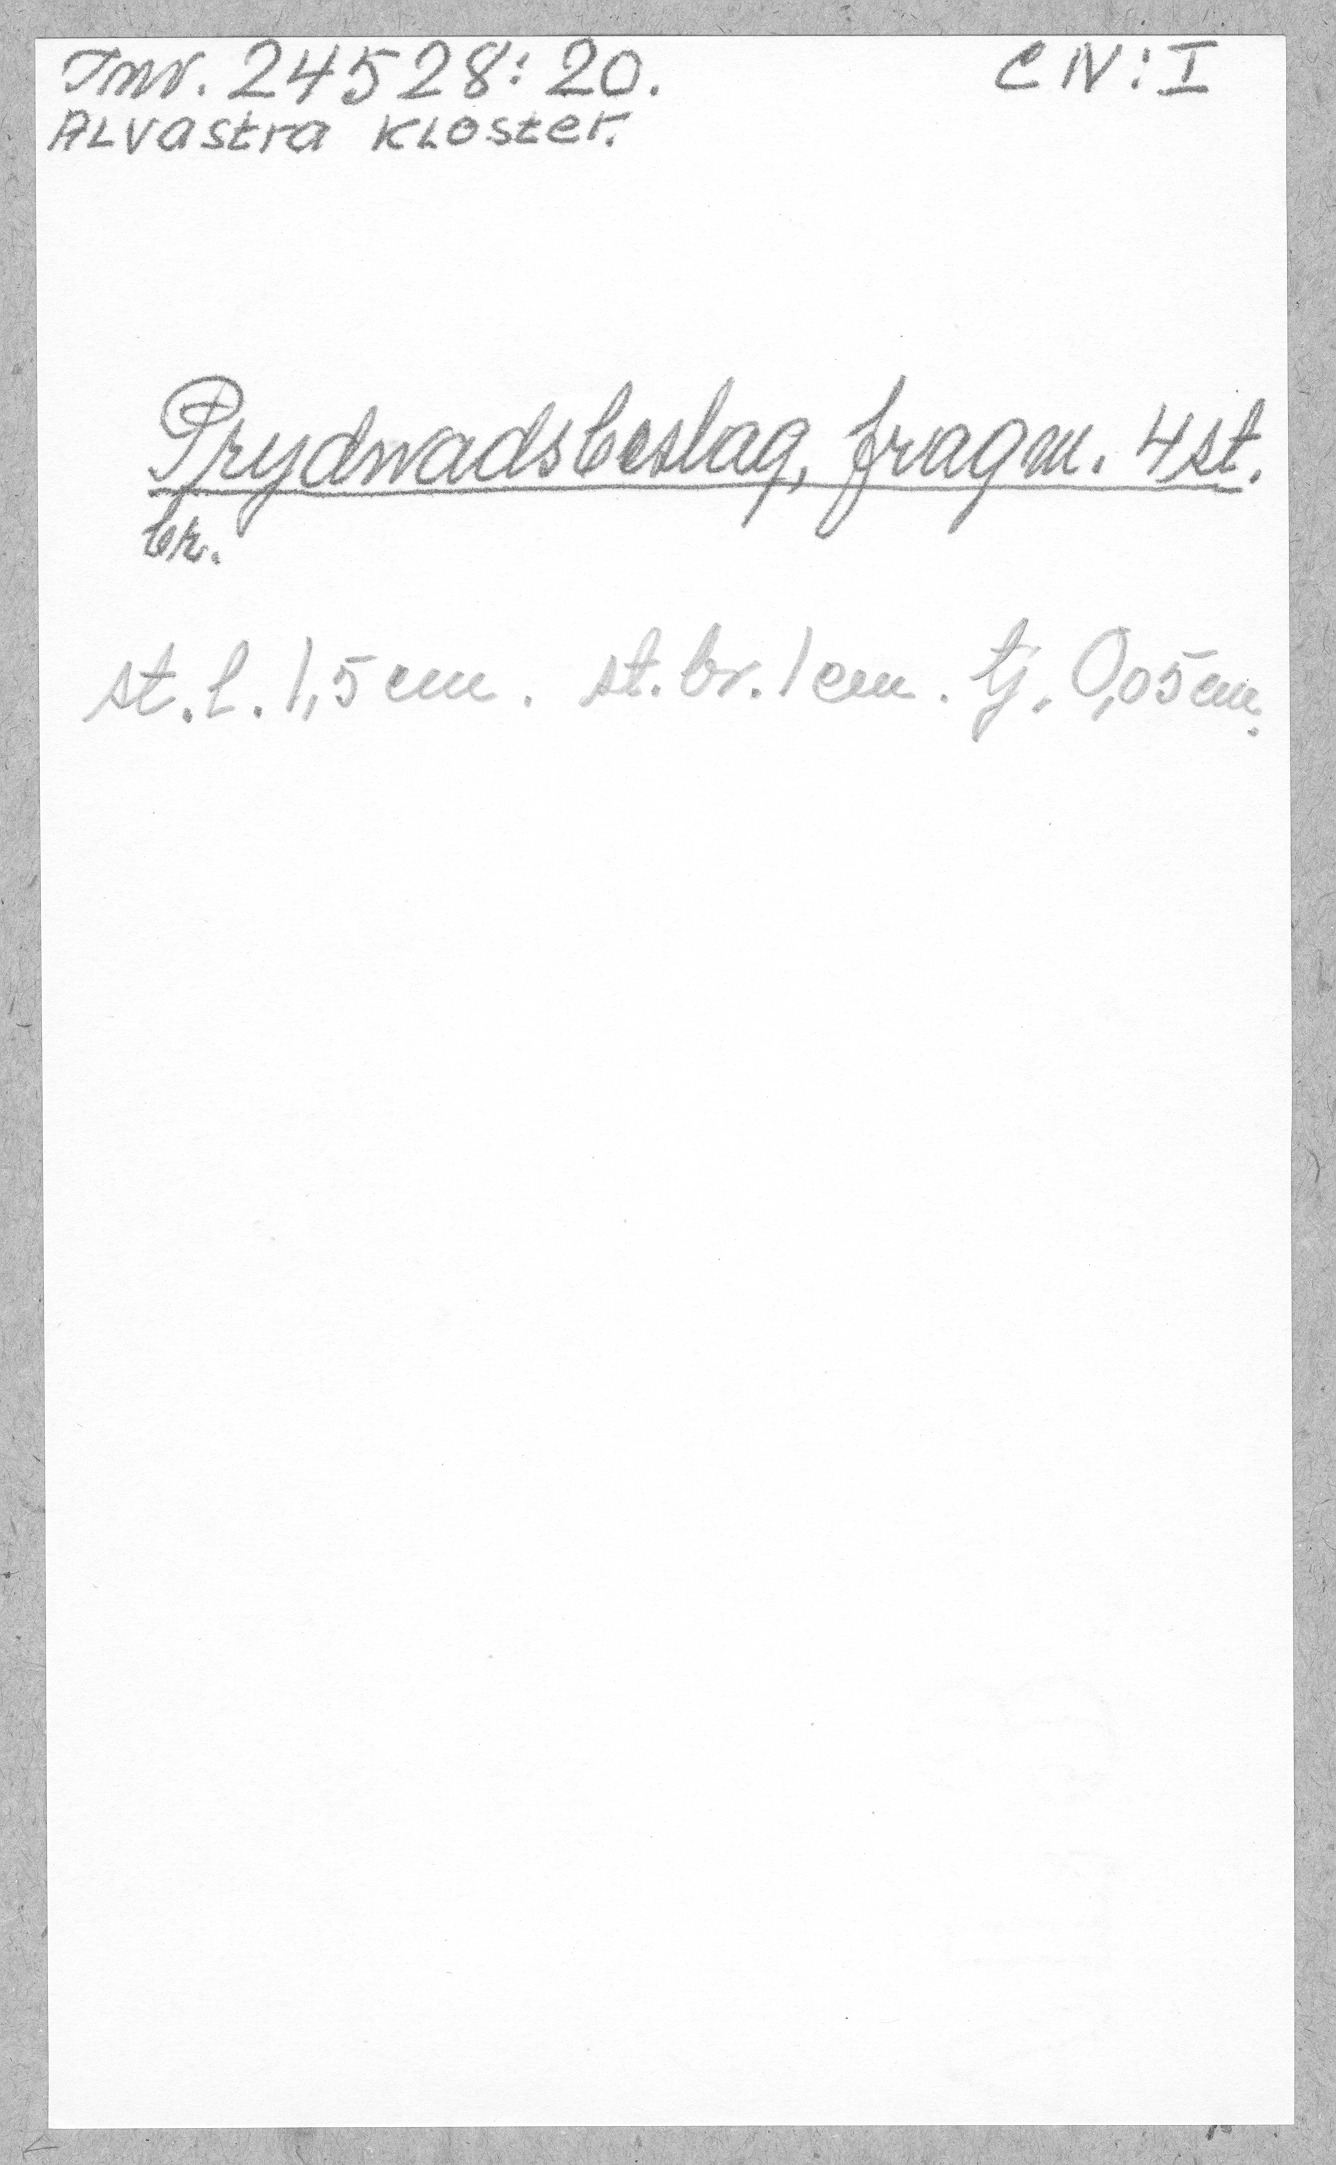 Inv. 24528:20. C IV:I
Alvastra Kloster.
Prydnadsbeslag, fragm. 4 st.
br.
st. l. 1,5 cm. st. br. 1 cm. tj. 0,05 cm.